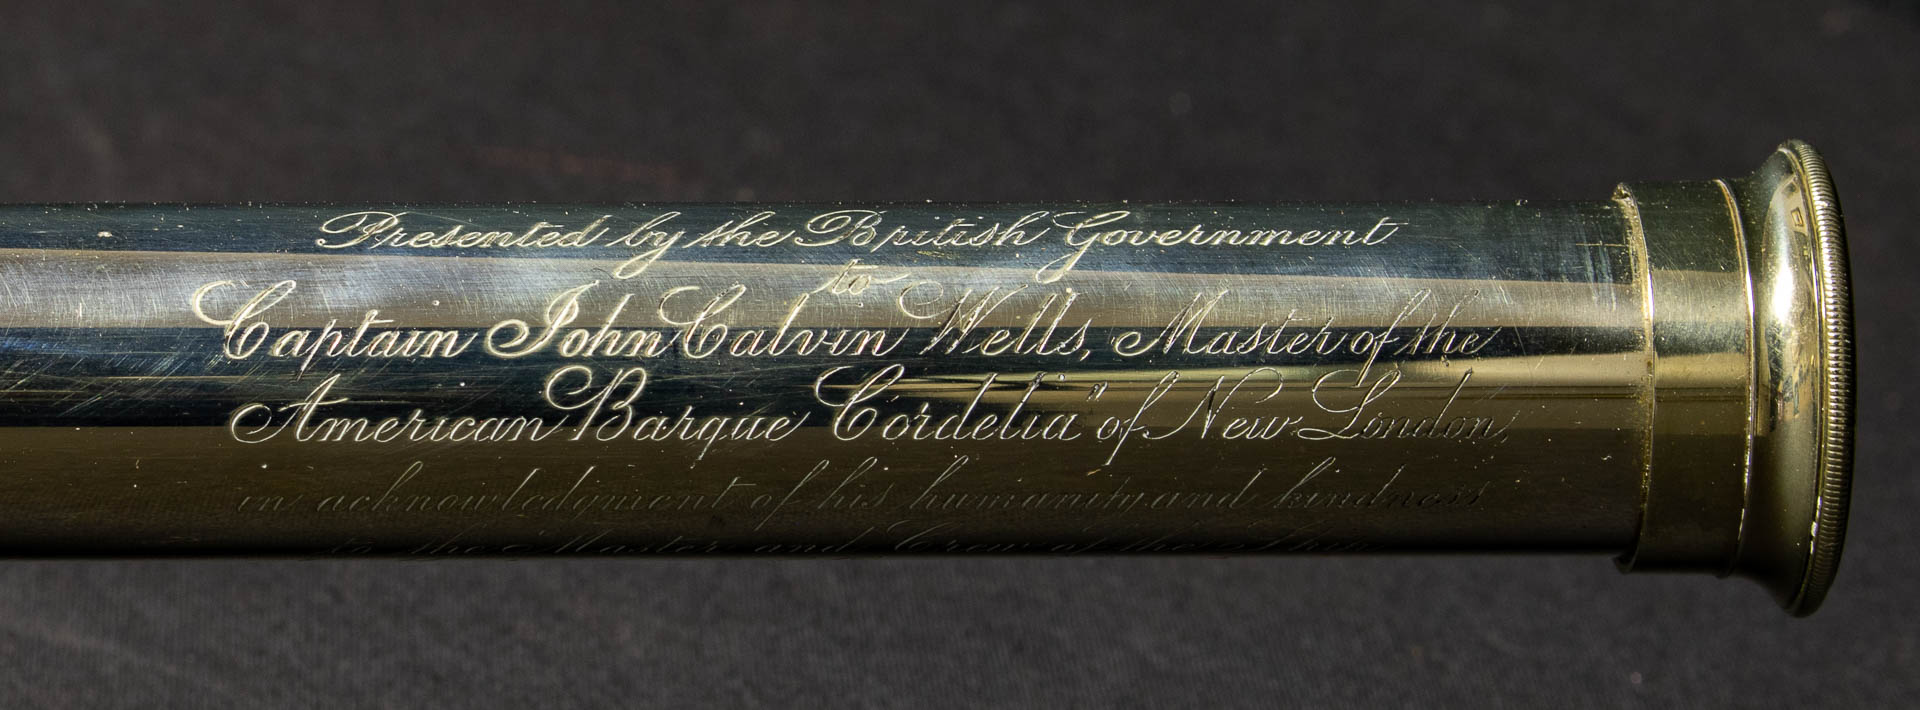 Presented by the British Government
to
Captain John Calvin Wells, Master of the
American Barque "Cordelia" of New London,
in acknowledgment of his humanity and kindness
to the Master and Crew of the Ship